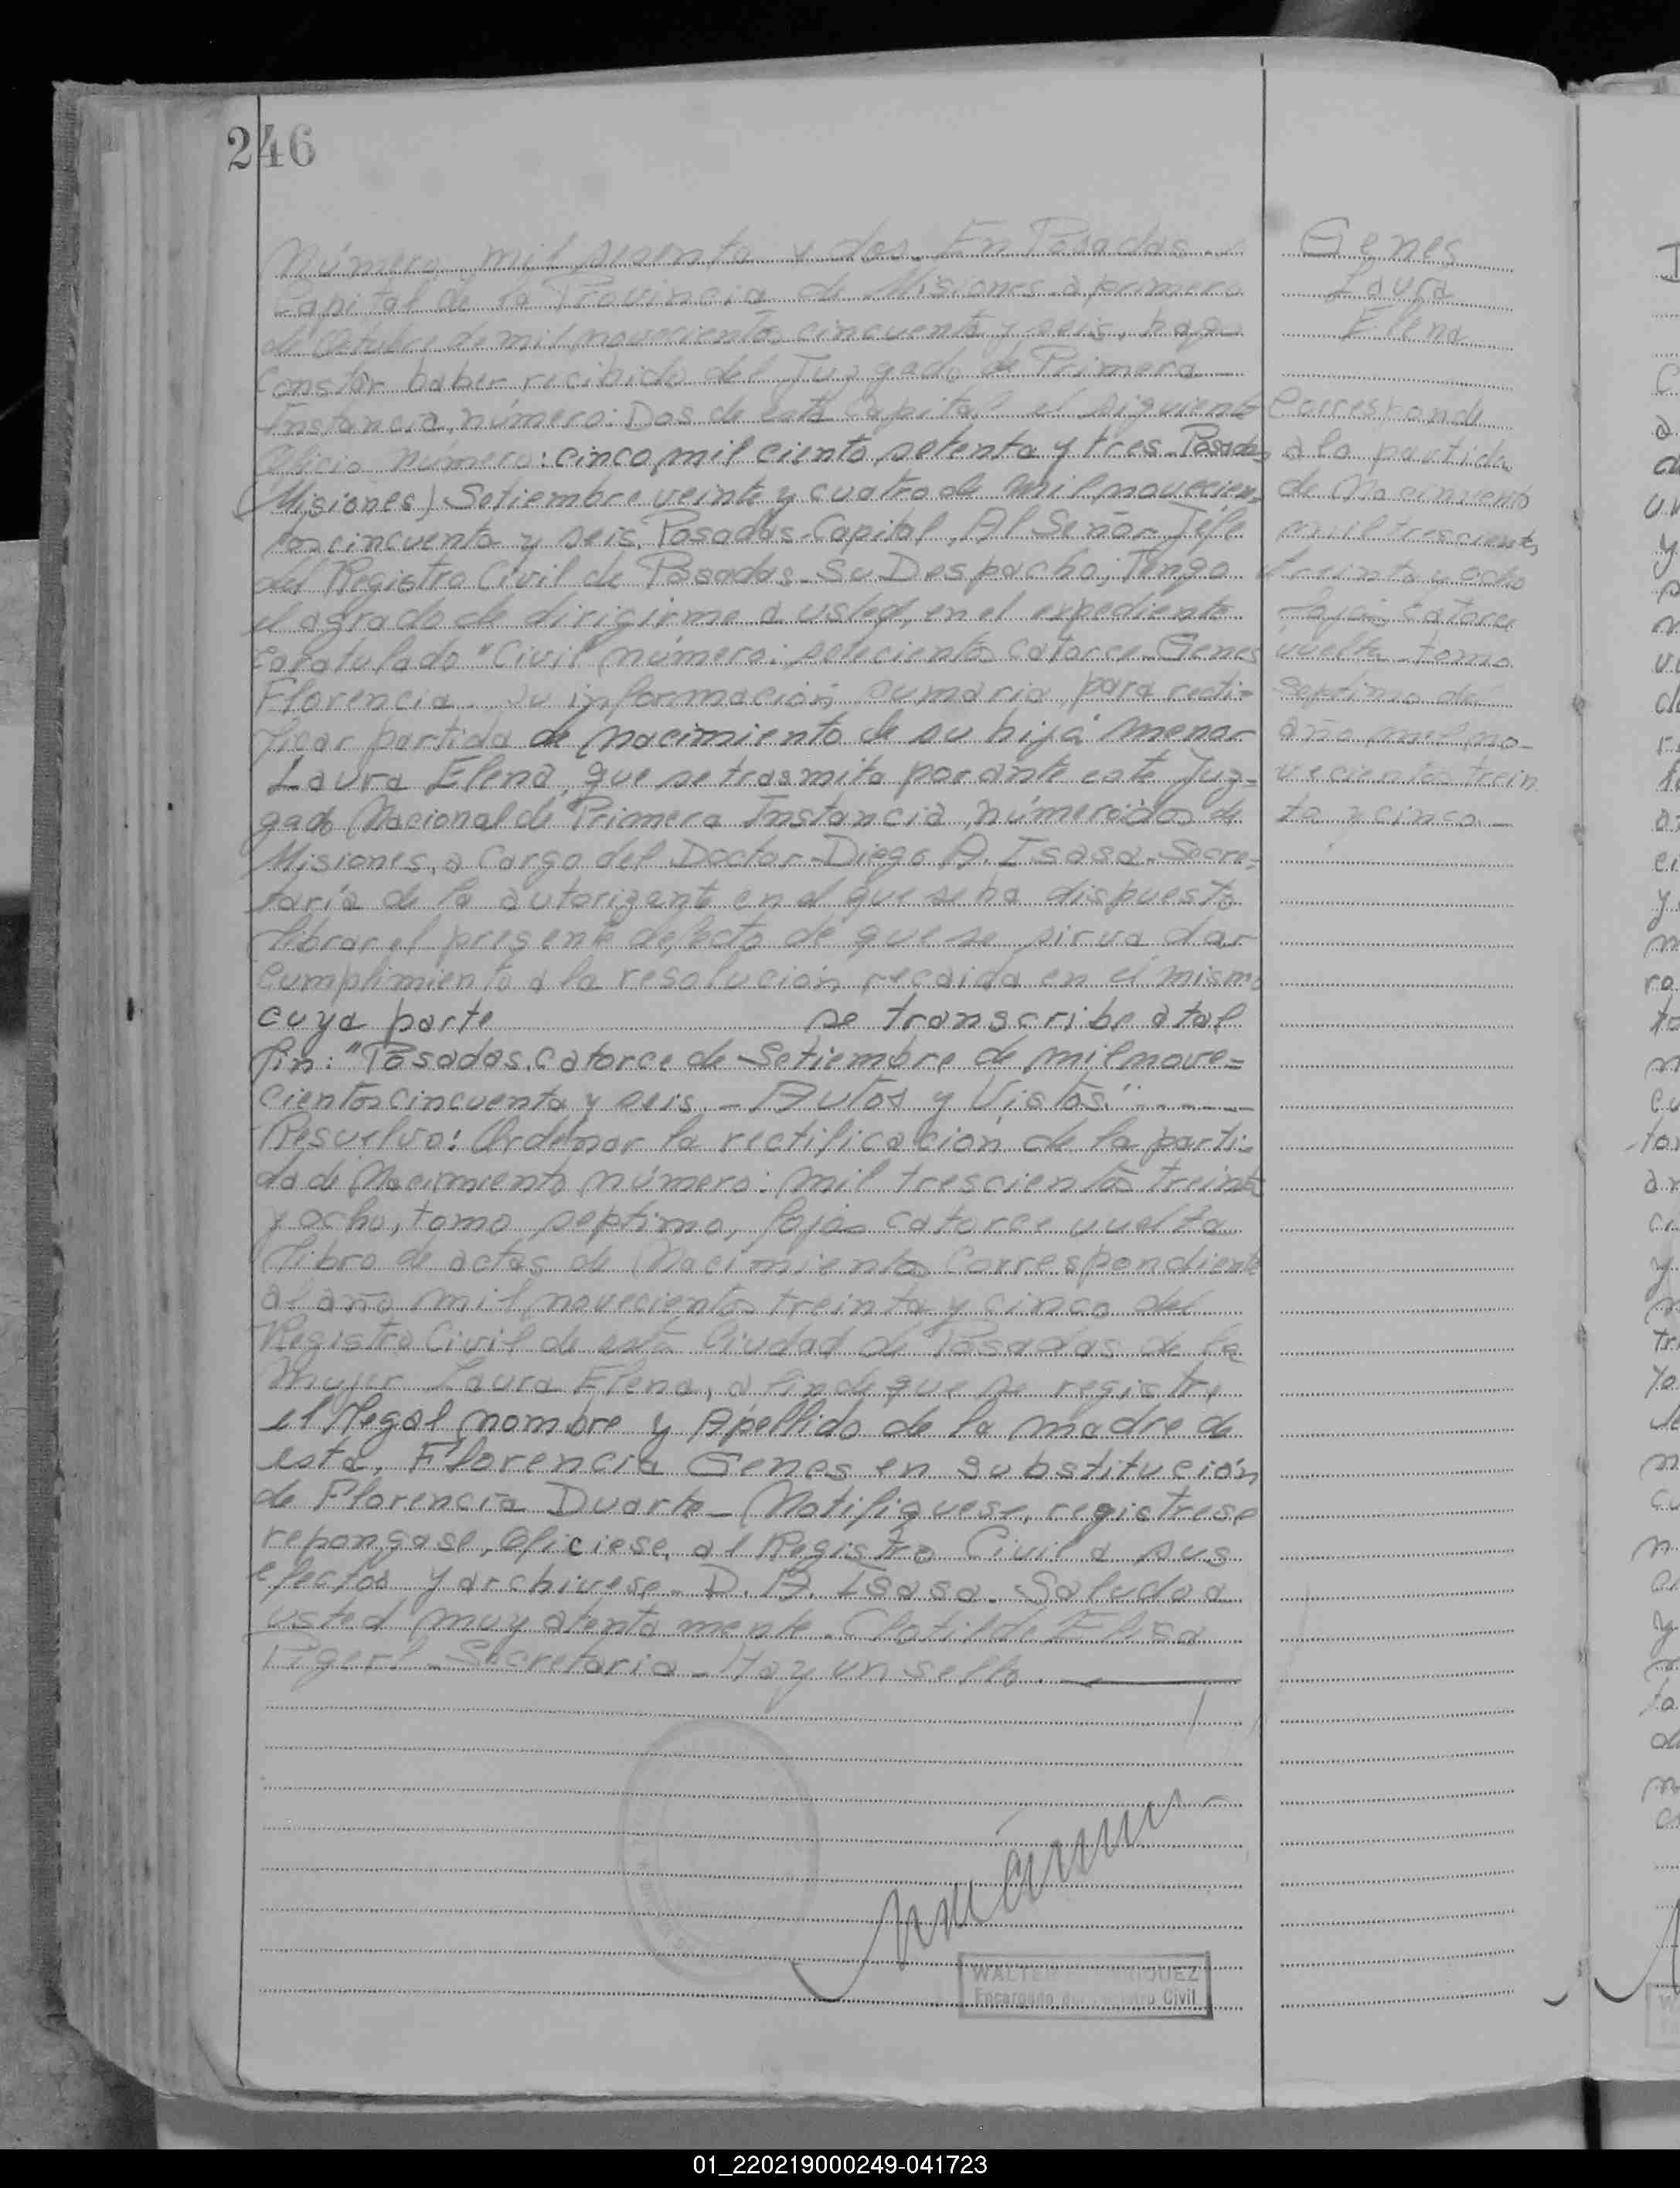 246
Número mil sesenta y dos. En Posadas
Capital de la Provincia de Misiones a primero
de Octubre de mil novecientos cincuenta y seis, hago
constar haber recibido del Juzgado de Primera
Instancia, número: Dos de esta Capital el siguiente
Oficio número: cinco mil ciento setenta y tres. Posadas
(Misiones) Setiembre veinte y cuatro de mil novecien=
tos cincuenta y seis. Posadas-Capital, Al Señor Jefe
del Registro Civil de Posadas-Su Despacho; Tengo
el agrado de dirigirme a usted, en el expediente
caratulado "Civil número: setecientos catorce-Genes
Florencia su información sumaria para recti=
ficar partida de nacimiento de su hija menor
Laura Elena, que se trasmita por ante este Juz=
gado Nacional de Primera Instancia, número: dos de
Misiones, a cargo del Doctor-Diego A. Isasa-Secre=
taría de la autorizante en el que se ha dispuesto
librar el presente de que se sirva dar
cumplimiento a la resolución recaida en el mismo
cuya parte se transcribe a tal
fin: "Posadas, catorce de Setiembre de mil nove=
cientos cincuenta y seis.- Autos y Vistos: ------
Resuelvo: Ordenar la rectificación de la parti=
da de Nacimiento número: mil trescientos treinta
y ocho, tomo septimo, fojas catorce vuelta
libro de actas de Nacimientos Correspondiente
al año mil novecientos treinta y cinco del
Registro Civil de esta Ciudad de Posadas de la
mujer Laura Elena, a fin de que se registre
el legal nombre y Apellido de la madre de
esta, Florencia Genes en substitución
de Florencia Duarte-Notifiquese, registrese
repongase, Oficiese, al Registro Civil a sus
efectos y archivese-D. A. Isasa. Saluda a
usted muy atentamente. Clotilde Elisa
-Secretaria-Hay un sello.
Genes
Laura
Elena
Corresponde
a la partida
de Nacimiento
mil trescientos
treinta y ocho
fojas catorce
vuelta tomo
septimo del
año mil no-
vecientos trein
ta y cinco-
WALTER
Encargado del Registro Civil
01_220219000249-041723